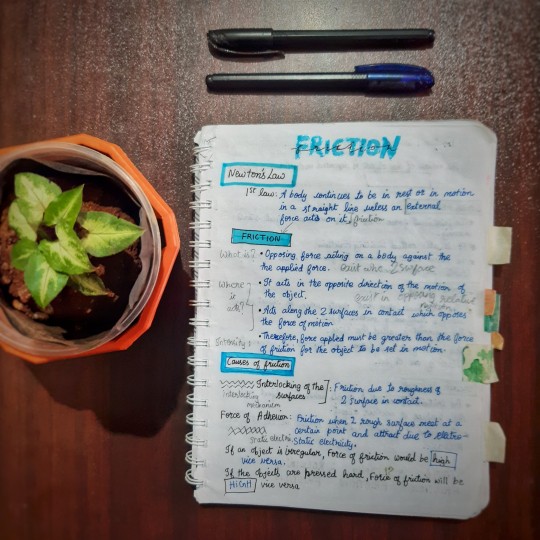 FRICTION
Newton's Law
1st law: A body continues to be in rest or in motion
in a straight line unless an external
force acts on it. friction
FRICTION
What is? • Opposing force acting on a body against the
the applied force. 2 surface
Where is acts? • It acts in the opposite direction of the motion of
the object. in opposing
• Acts along the 2 surfaces in contact which opposes
the force of motion
Intensity: • Therefore, force applied must be greater than the force
of friction for the object to be set in motion.
Causes of friction
Interlocking of the surfaces: Friction due to roughness of
2 surface in contact.
Interlocking mechanism
Force of Adhesion: Friction when 2 rough surface meet at a
certain point and attract due to electro-
static electri static electricity.
If an object is irregular, Force of friction would be high
vice versa.
If the objects are pressed hard, Force of friction will be
HIGH vice versa